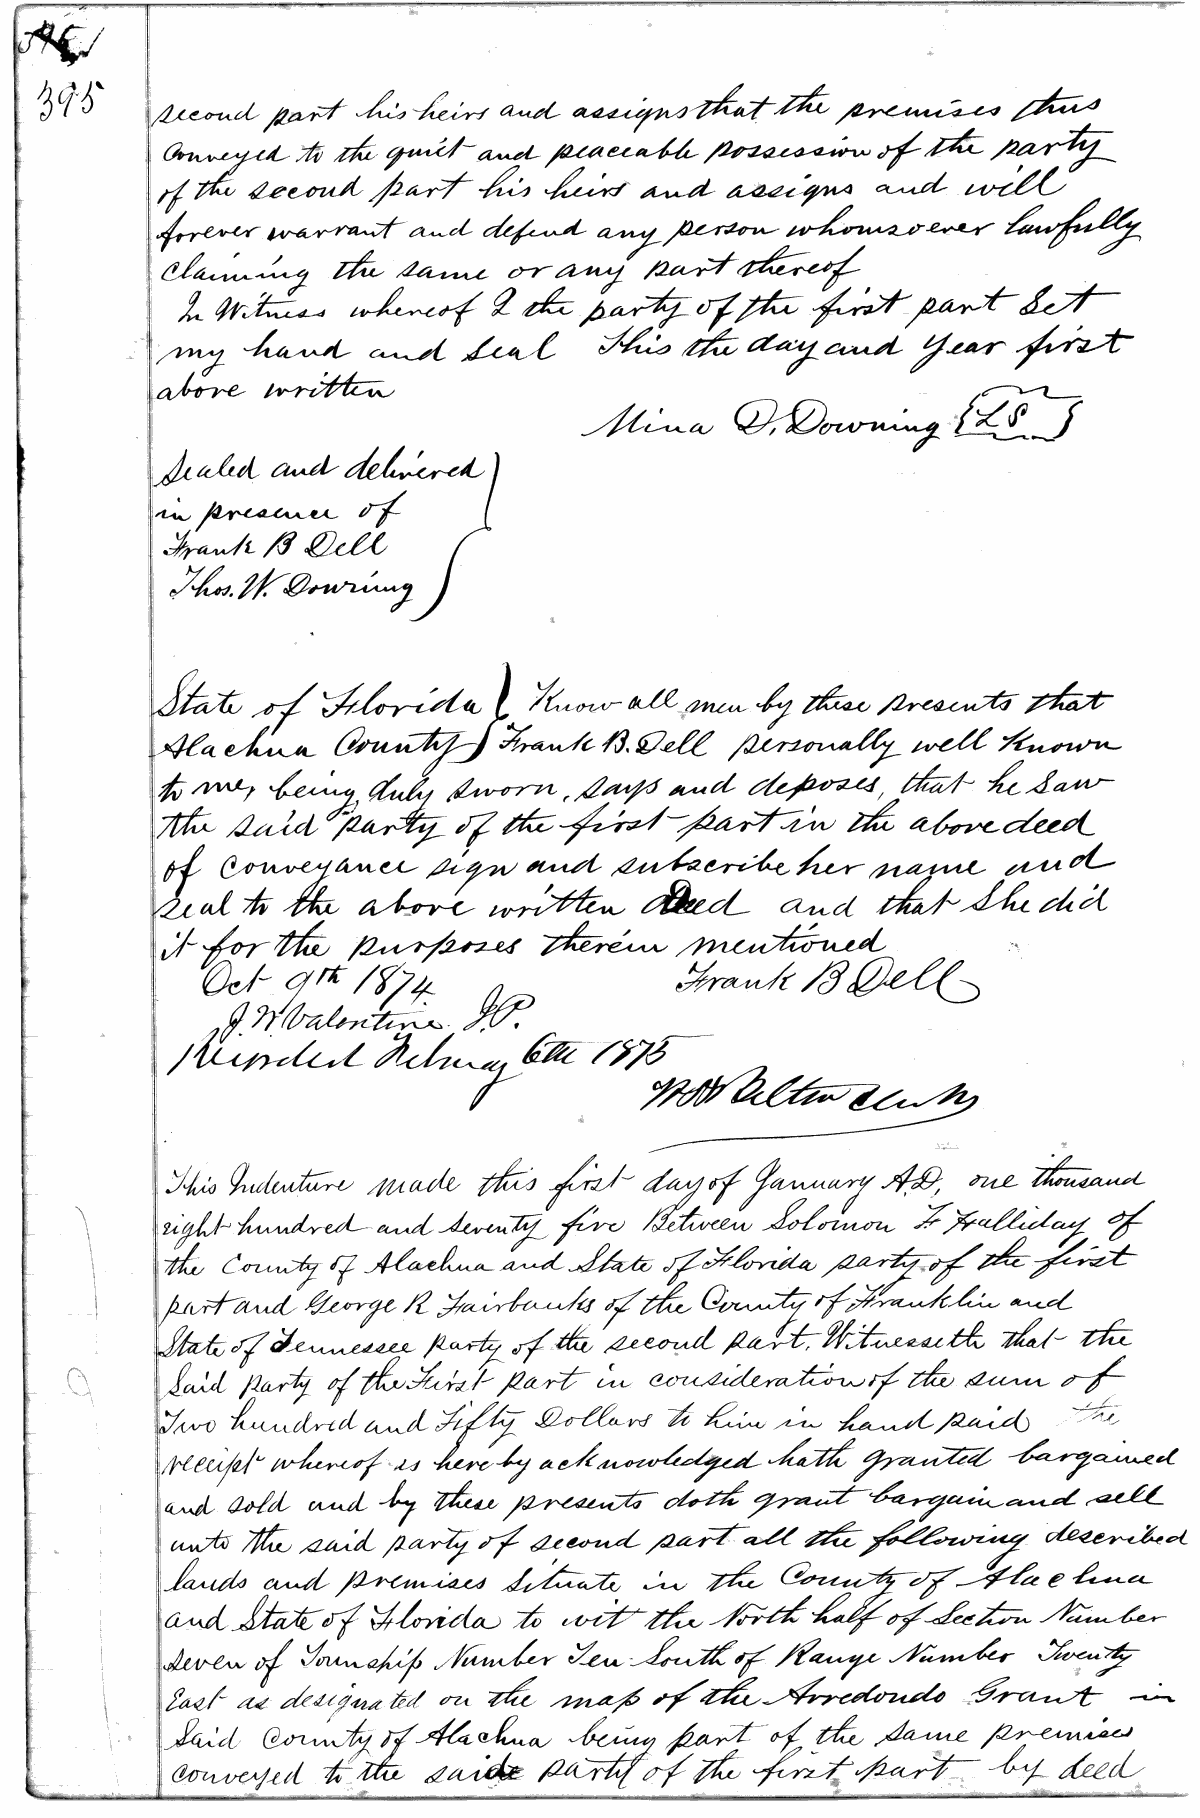 395
second part his heirs and assigns that the premises thus
Conveyed to the quiet and peaceable possession of the party
of the second part his heirs and assigns and will
forever warrant and defend any person whomsoever lawfully
claiming the same or any part thereof
In Witness whereof I the party of the first part Set
my hand and Seal This the day and Year first
above written
Mina D. Downing {LS}
Sealed and delivered
in presence of
Frank B Dell
Thos. W. Downing
State of Florida } Know all men by these presents that
Alachua County } Frank B. Dell personally well Known
to me, being duly sworn, says and deposes, that he Saw
the said party of the first part in the above deed
of conveyance sign and subscribe her name and
seal to the above written Deed and that She did
it for the purposes therein mentioned
Oct 9th 1874. Frank B Dell
J. W. Valentine J.P.
Recorded February 6th 1875
Clerk
This Indenture made this first day of January A.D, one thousand
eight hundred and seventy five Between Solomon F Halliday of
the County of Alachua and State of Florida party of the first
part and George R Fairbanks of the County of Franklin and
State of Tennessee party of the second part. Witnesseth that the
Said party of the First part in consideration of the sum of
Two hundred and Fifty Dollars to him in hand paid the
receipt whereof is hereby acknowledged hath granted bargained
and sold and by these presents doth grant bargain and sell
unto the said party of second part all the following described
lands and premises Situate in the County of Alachua
and State of Florida to wit the North half of Section Number
seven of Township Number Ten South of Range Number Twenty
East as designated on the map of the Arredondo Grant in
Said County of Alachua being part of the same premises
conveyed to the said party of the first part by deed